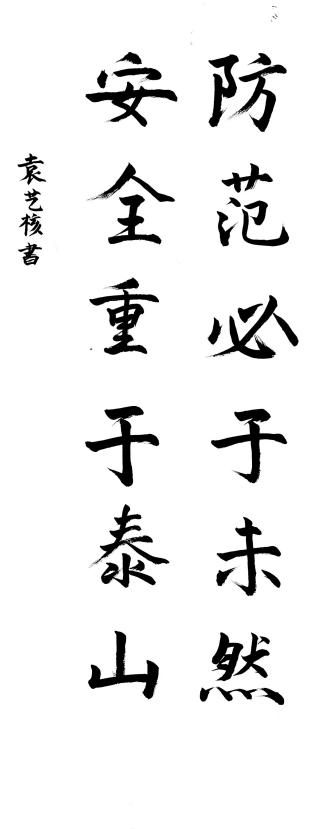 防范必于未然
安全重于泰山
袁艺核書